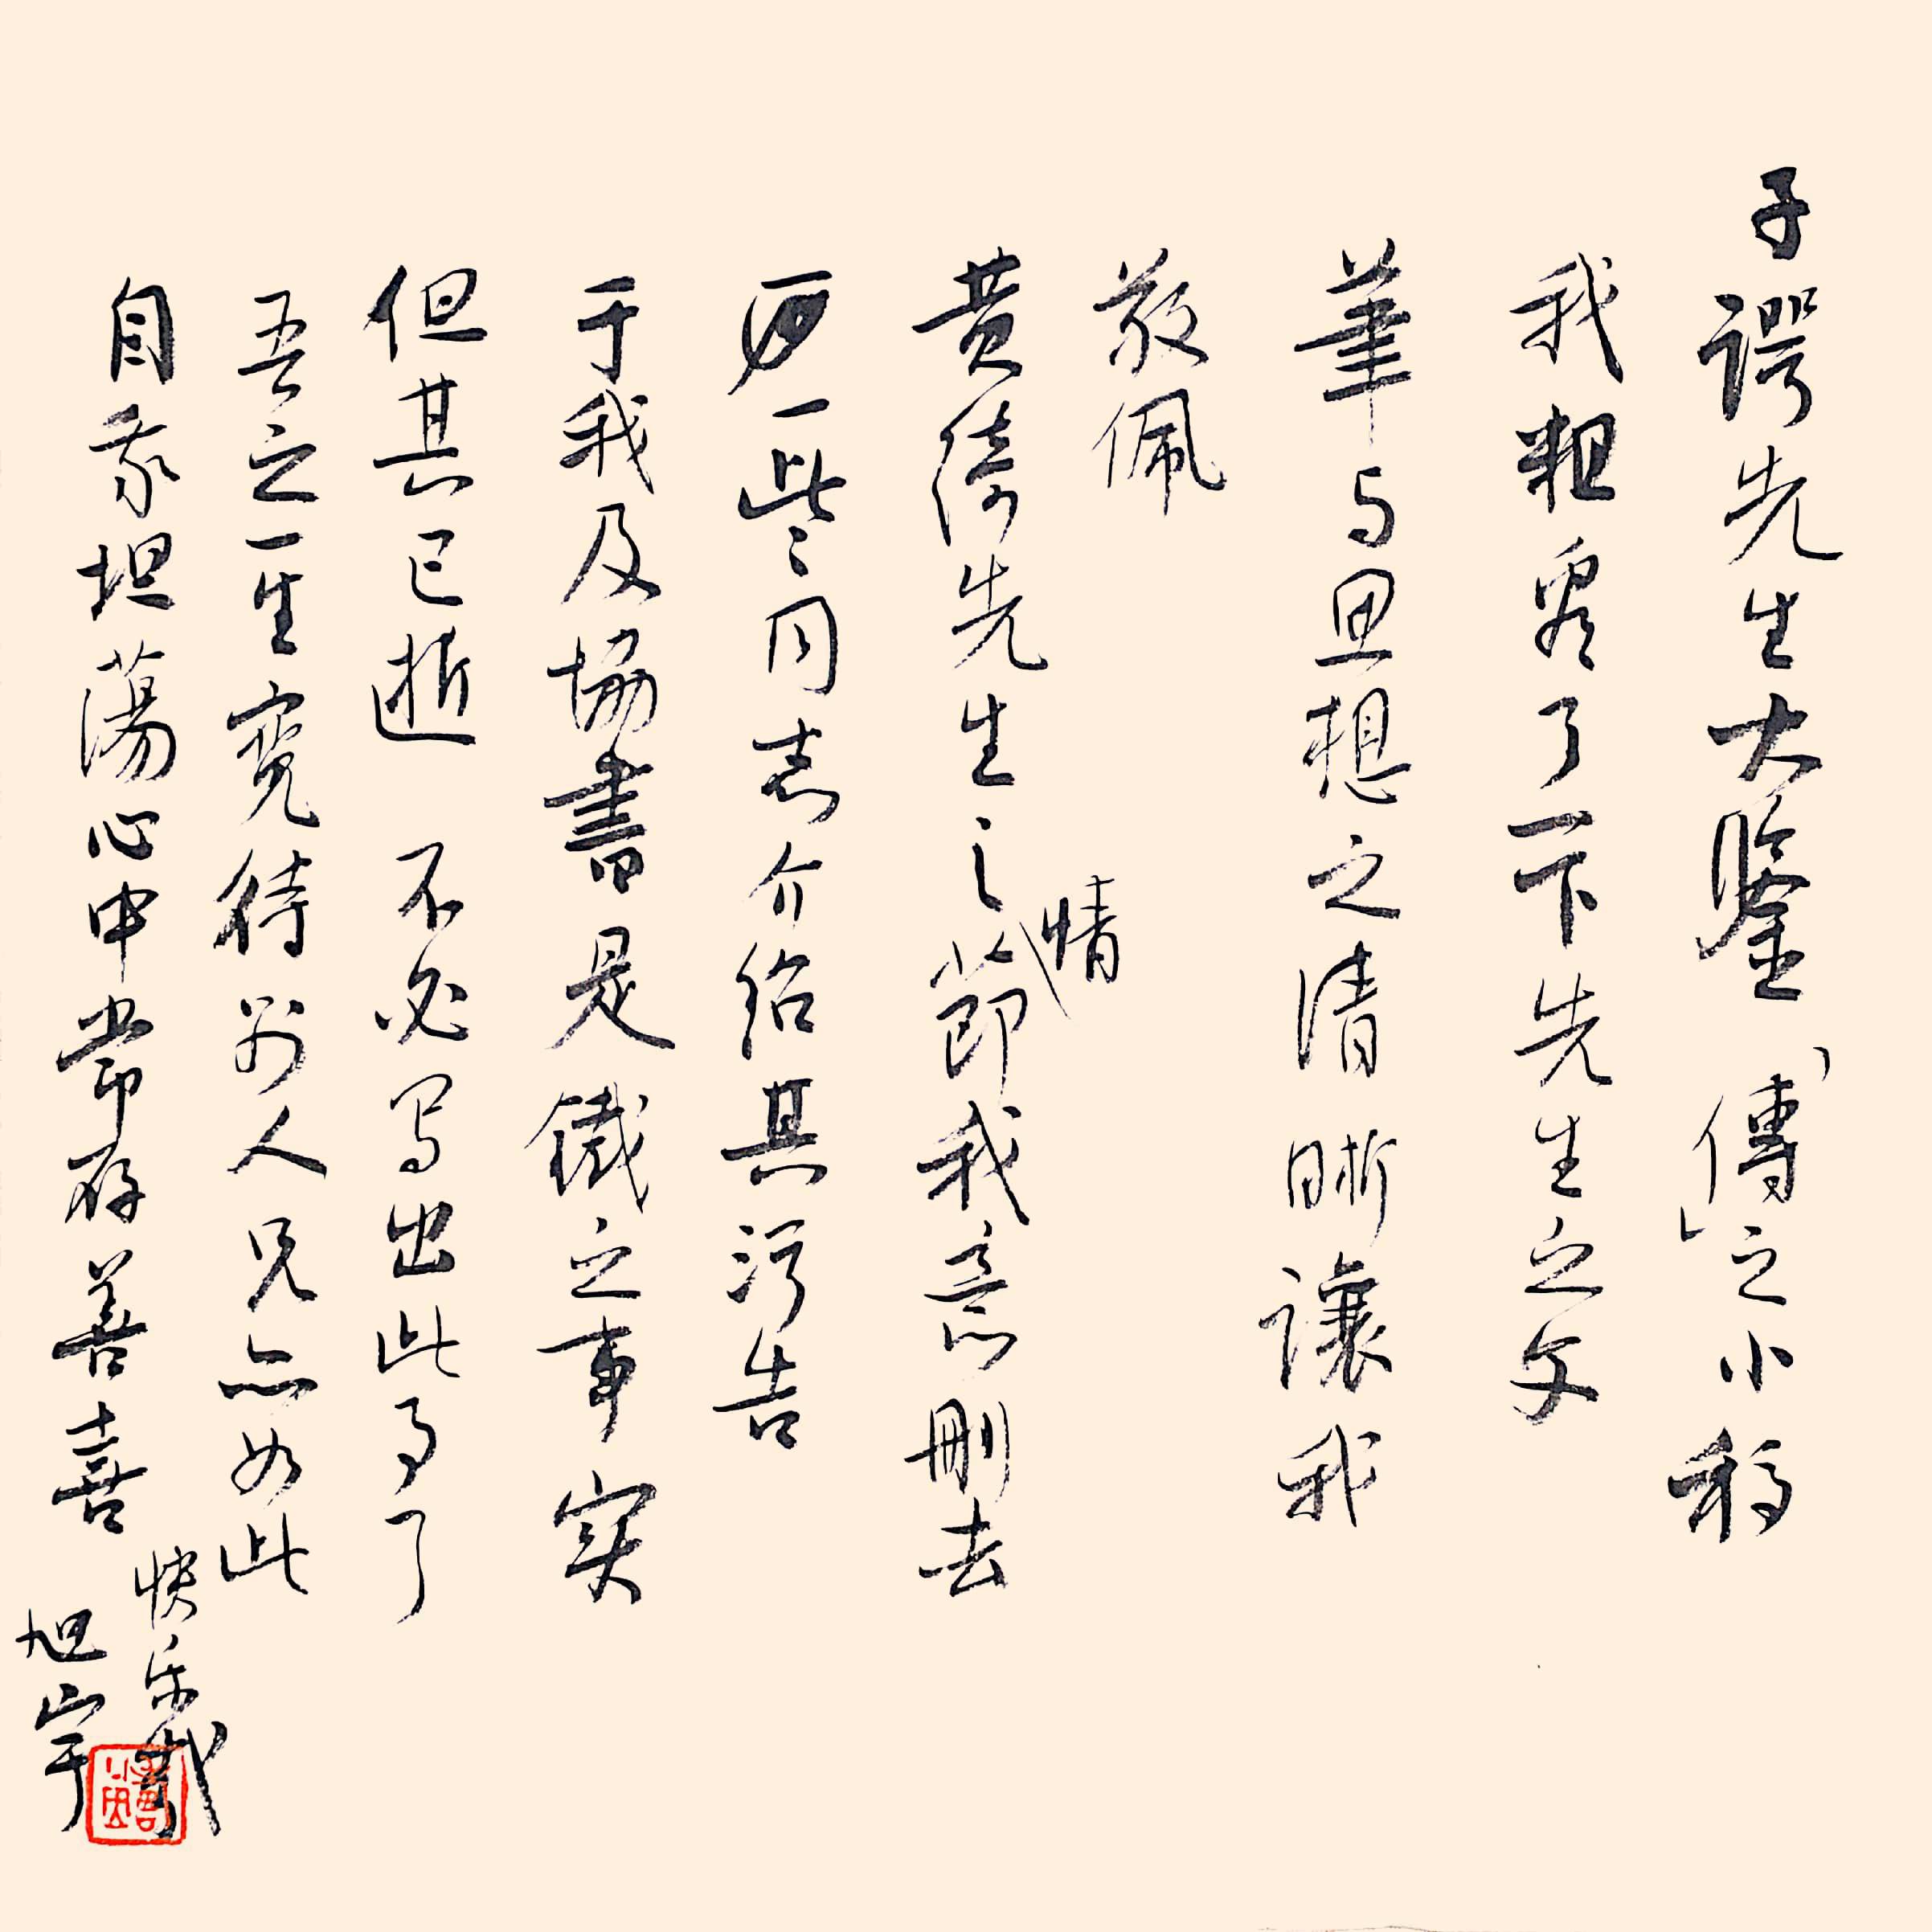 子谔先生大鑒「傳」之小稿
我粗略了一下先生之文
筆与思想之清晰讓我
敬佩
黄綺先生之情節我意删去
一些同志介绍其污告
于我及協書是鐵之事实
但其已逝 不必写出此事了
吾之一生寬待别人兄亦如此
自家坦蕩心中常存善喜
快乐哉
旭宇